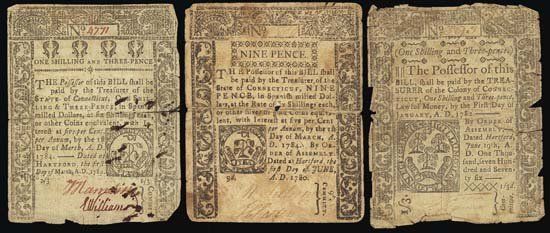 No 4771
ONE SHILLING AND THREE-PENCE
THE Possessor of this BILL, shall be
paid by the Treasurer of the
STATE of Connecticut,
& THREE-PENCE, in Spanish
milled Dollars, at six Shillings each,
or other Coins equivalent, with
Interest at per Cent. per
Annum, by the 1st Day
of March, A. D.
1784.—Dated at
HARTFORD, the first
Day of March, A. D. 1780.
Williams
No
NINE PENCE.
THE Possessor of this BILL, shall
be paid by the Treasurer of the
State of Connecticut, NINE
PENCE, in Spanish milled Dol-
lars, at the Rate of Six Shillings each,
or other Coins equivalent,
with Interest at five per Cent.
per Annum, by the 1st
Day of MARCH,
A. D. 1784. By OR-
DER of ASSEMBLY,
Dated at Hartford, the
first Day of JUNE,
A. D. 1780.
9d.
No
One Shilling and Three-pence.
The Possessor of this
BILL, shall be paid by the TREA-
SURER of the COLONY of CONNEC-
TICUT, One Shilling and Three-pence,
Lawful Money, by the First Day of
JANUARY, A. D. 1782
By ORDER of
ASSEMBLY. Dated
Hartford, June
19th, A. D. One Thou-
sand, seven Hundred
and Seven-
ty six
1/3d.
1/3